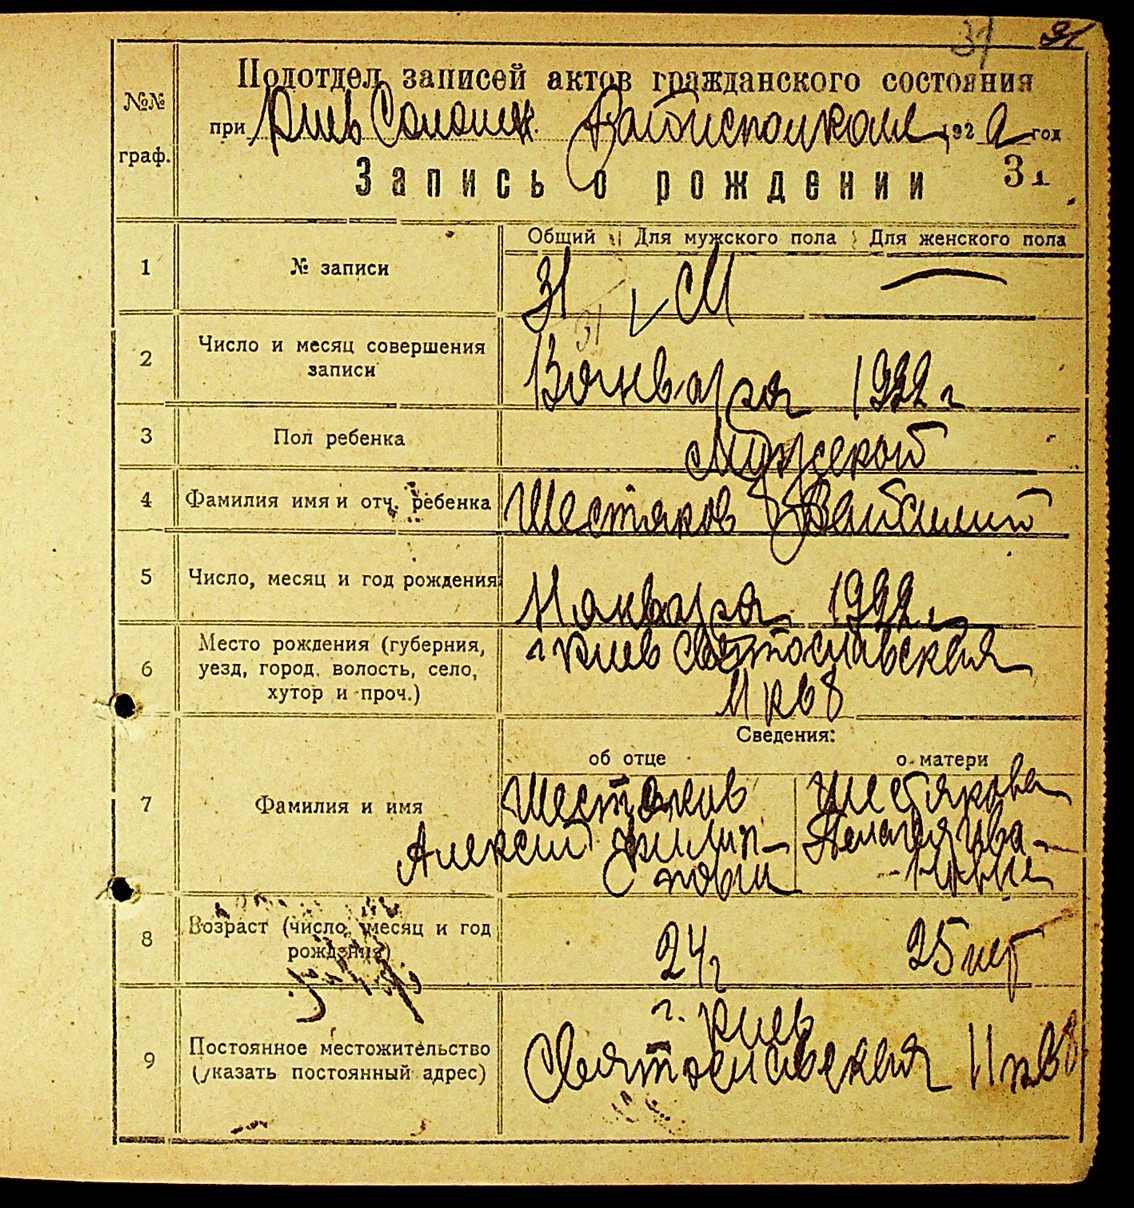 31 31
Подотдел записей актов гражданского состояния
№№
граф.
при Киев Соломен. Райисполкоме 1922 год
31
Запись о рождении
Общий Для мужского пола Для женского пола
1 № записи 31 М —
31
2 Число и месяц совершения
записи
января 1922 г
3 Пол ребенка Мужской
4 Фамилия имя и отч. ребенка Шестяков
5 Число, месяц и год рождения
Января 1922 г.
6 Место рождения (губерния,
уезд, город, волость, село,
хутор и проч.)
г Киев Святославская
11 кв 8
Сведения:
об отце о матери
7 Фамилия и имя
Шестяков
Алексей Филип-
пович
Шестякова
Пелагея Ива-
новна
8 Возраст (число, месяц и год
рождения)
24 г 25 лет
9 Постоянное местожительство
(указать постоянный адрес)
г. Киев
Святославская 11 кв 8